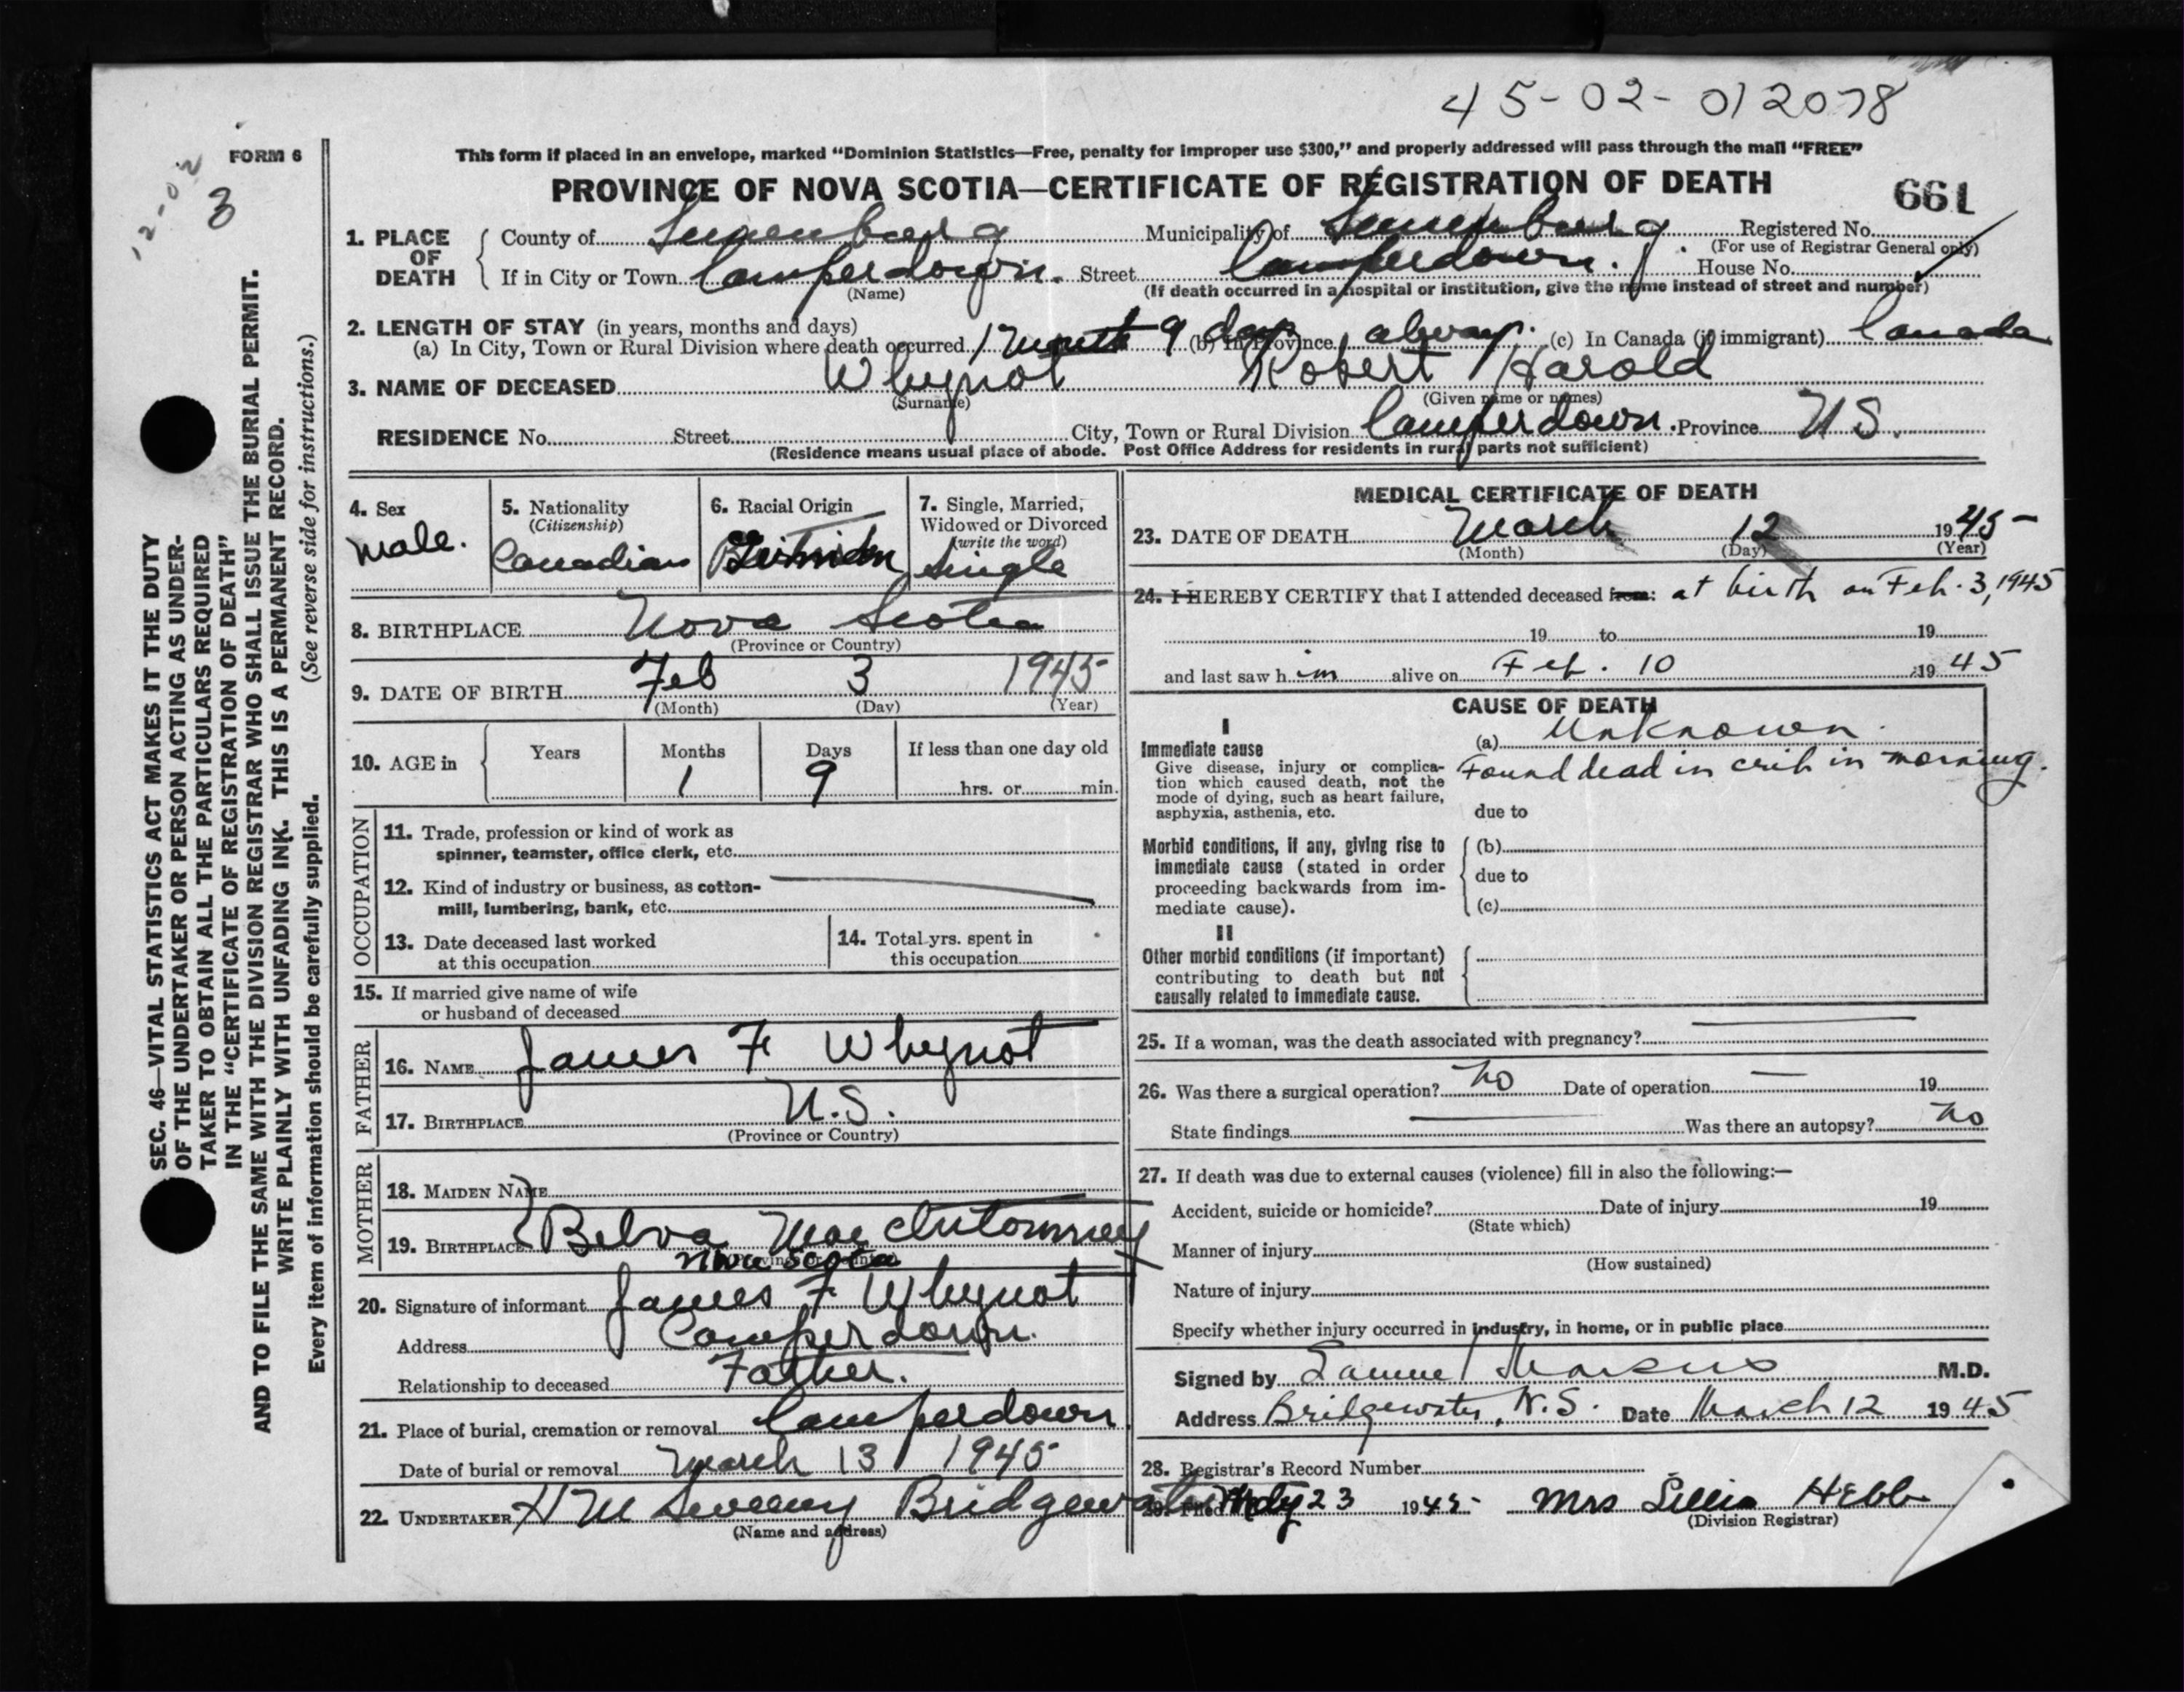 45-02-012078
FORM 6
12-02
3
This form if placed in an envelope, marked “Dominion Statistics—Free, penalty for improper use $300,” and properly addressed will pass through the mail “FREE”
PROVINCE OF NOVA SCOTIA—CERTIFICATE OF REGISTRATION OF DEATH
661
1. PLACE OF DEATH
County of Lunenburg Municipality of Lunenburg Registered No.
(For use of Registrar General only)
If in City or Town Camperdown. Street Camperdown. House No.
(Name) (If death occurred in a hospital or institution, give the name instead of street and number)
2. LENGTH OF STAY (in years, months and days)
(a) In City, Town or Rural Division where death occurred 1 Month 9 days (b) In Province always. (c) In Canada (if immigrant) Canada
3. NAME OF DECEASED Whynot Robert Harold
(Surname) (Given name or names)
RESIDENCE No. Street City, Town or Rural Division Camperdown. Province N S.
(Residence means usual place of abode. Post Office Address for residents in rural parts not sufficient)
4. Sex
male.
5. Nationality
(Citizenship)
Canadian
6. Racial Origin
7. Single, Married,
Widowed or Divorced
(write the word)
Single
8. BIRTHPLACE Nova Scotia
(Province or Country)
9. DATE OF BIRTH Feb 3 1945
(Month) (Day) (Year)
10. AGE in
Years Months Days If less than one day old
1 9 hrs. or min.
OCCUPATION
11. Trade, profession or kind of work as
spinner, teamster, office clerk, etc.
12. Kind of industry or business, as cotton-
mill, lumbering, bank, etc.
13. Date deceased last worked
at this occupation
14. Total yrs. spent in
this occupation
15. If married give name of wife
or husband of deceased
FATHER
16. NAME James F Whynot
17. BIRTHPLACE N.S.
(Province or Country)
MOTHER
18. MAIDEN NAME
19. BIRTHPLACE Belva
Nova Scotia
20. Signature of informant James F Whynot
Address Camperdown.
Relationship to deceased Father.
21. Place of burial, cremation or removal Camperdown
Date of burial or removal March 13 1945
22. UNDERTAKER H M Sweeny Bridgewater
(Name and address)
MEDICAL CERTIFICATE OF DEATH
23. DATE OF DEATH March 12 1945
(Month) (Day) (Year)
24. I HEREBY CERTIFY that I attended deceased from: at birth on Feb. 3, 1945
19 to 19
and last saw him alive on Feb. 10 1945
CAUSE OF DEATH
I
Immediate cause
Give disease, injury or complica-
tion which caused death, not the
mode of dying, such as heart failure,
asphyxia, asthenia, etc.
(a) Unknown.
Found dead in crib in morning.
due to
Morbid conditions, if any, giving rise to
immediate cause (stated in order
proceeding backwards from im-
mediate cause).
(b)
due to
(c)
II
Other morbid conditions (if important)
contributing to death but not
causally related to immediate cause.
25. If a woman, was the death associated with pregnancy?
26. Was there a surgical operation? no Date of operation — 19
State findings Was there an autopsy? no
27. If death was due to external causes (violence) fill in also the following:—
Accident, suicide or homicide? Date of injury 19
(State which)
Manner of injury
(How sustained)
Nature of injury
Specify whether injury occurred in industry, in home, or in public place
Signed by Samuel Marcus M.D.
Address Bridgewater, N.S. Date March 12 1945
28. Registrar's Record Number
29. Filed 23 1945 Mrs Lillis Hebb
(Division Registrar)
SEC. 46—VITAL STATISTICS ACT MAKES IT THE DUTY
OF THE UNDERTAKER OR PERSON ACTING AS UNDER-
TAKER TO OBTAIN ALL THE PARTICULARS REQUIRED
IN THE “CERTIFICATE OF REGISTRATION OF DEATH”
AND TO FILE THE SAME WITH THE DIVISION REGISTRAR WHO SHALL ISSUE THE BURIAL PERMIT.
WRITE PLAINLY WITH UNFADING INK. THIS IS A PERMANENT RECORD.
Every item of information should be carefully supplied. (See reverse side for instructions.)